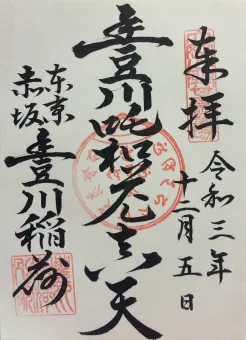 奉拝
令和三年
十二月五日
豊川吒枳尼真天
東京
赤坂
豊川稲荷